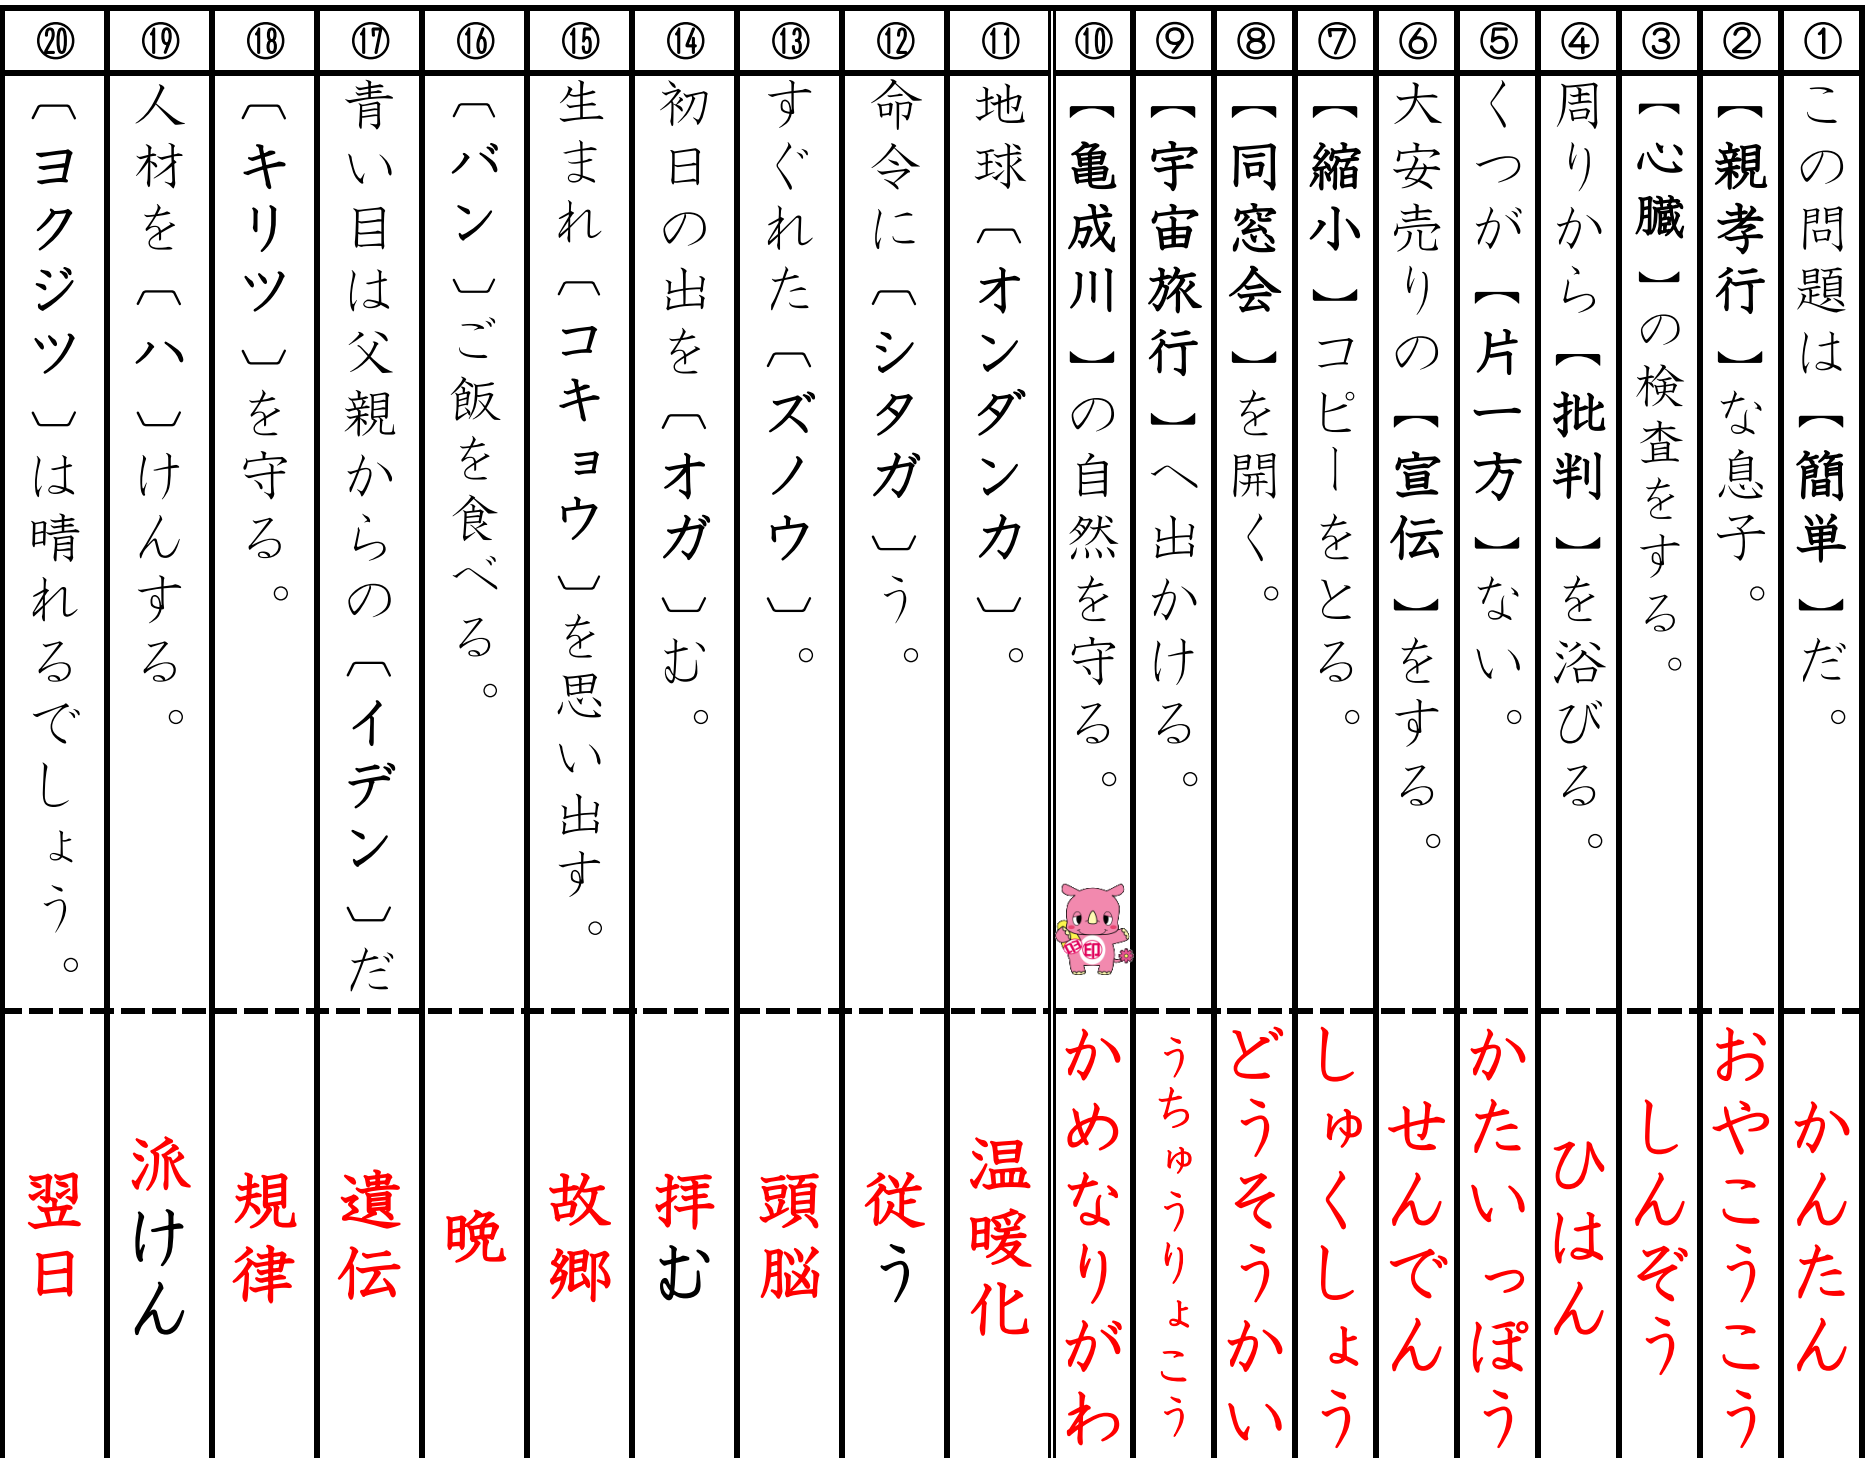 ①
この問題は【簡単】だ。
かんたん
②
【親孝行】な息子。
おやこうこう
③
【心臓】の検査をする。
しんぞう
④
周りから【批判】を浴びる。
ひはん
⑤
くつが【片一方】ない。
かたいっぽう
⑥
大安売りの【宣伝】をする。
せんでん
⑦
【縮小】コピーをとる。
しゅくしょう
⑧
【同窓会】を開く。
どうそうかい
⑨
【宇宙旅行】へ出かける。
うちゅうりょこう
⑩
【亀成川】の自然を守る。
印
印
かめなりがわ
⑪
地球〔オンダンカ〕。
温暖化
⑫
命令に〔シタガ〕う。
従う
⑬
すぐれた〔ズノウ〕。
頭脳
⑭
初日の出を〔オガ〕む。
拝む
⑮
生まれ〔コキョウ〕を思い出す。
故郷
⑯
〔バン〕ご飯を食べる。
晩
⑰
青い目は父親からの〔イデン〕だ
遺伝
⑱
〔キリツ〕を守る。
規律
⑲
人材を〔ハ〕けんする。
派けん
⑳
〔ヨクジツ〕は晴れるでしょう。
翌日